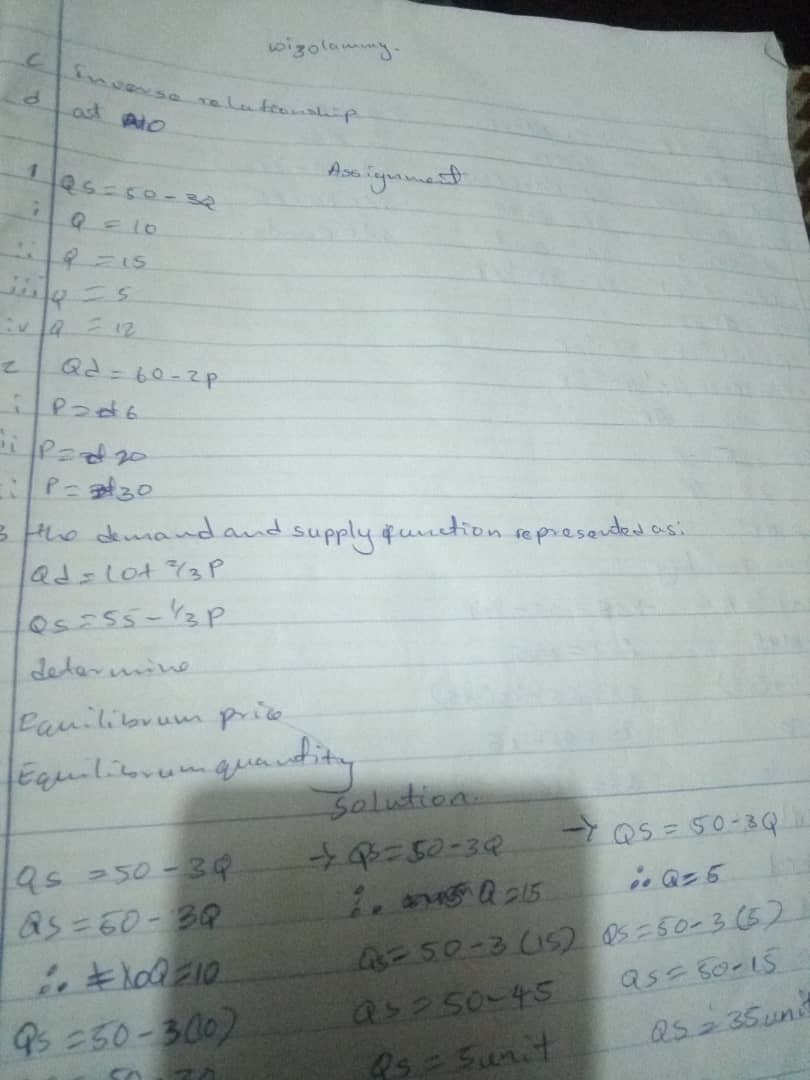 wizolammy.
c inverse relationship
d at 10
Assignment
1 QS = 50 - 3Q
i Q = 10
ii Q = 15
iii Q = 5
iv Q = 12
2 Qd = 60 - 2P
i P = 6
ii P = 20
P = 30
3 the demand and supply function represented as:
Qd = 10 + 2/3P
QS = 55 - 1/3P
determine
Equilibrum price
Equilibrum quantity
Solution.
QS = 50 - 3Q
QS = 50 - 3Q
∴ Q = 10
QS = 50 - 3(10)
→ QS = 50 - 3Q
∴ Q = 15
QS = 50 - 3(15)
QS = 50 - 45
QS = 5unit
→ QS = 50 - 3Q
∴ Q = 5
QS = 50 - 3(5)
QS = 50 - 15
QS = 35unit